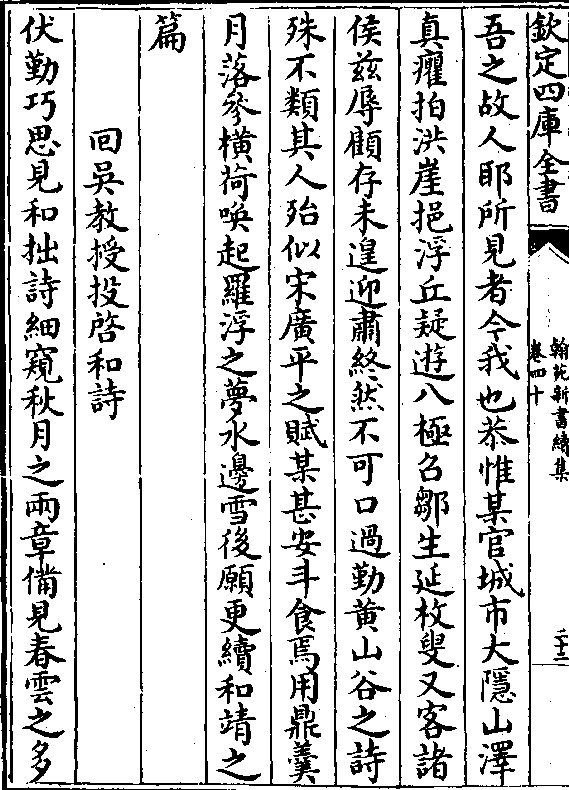 欽定四庫全書
翰苑新書續集
卷四十
二十二
吾之故人耶所見者今我也恭惟某官城市大隱山澤
真癯拍洪崖挹浮丘疑遊八極召鄒生延枚叟又客諸
侯兹辱顧存未遑迎肅終然不可口過勤黄山谷之詩
殊不類其人殆似宋廣平之賦某甚安斗食焉用鼎羮
月落參横荷喚起羅浮之夢水邊雪後願更續和靖之
篇
回吳教授投啓和詩
伏勤巧思見和拙詩細窺秋月之兩章備見春雲之多